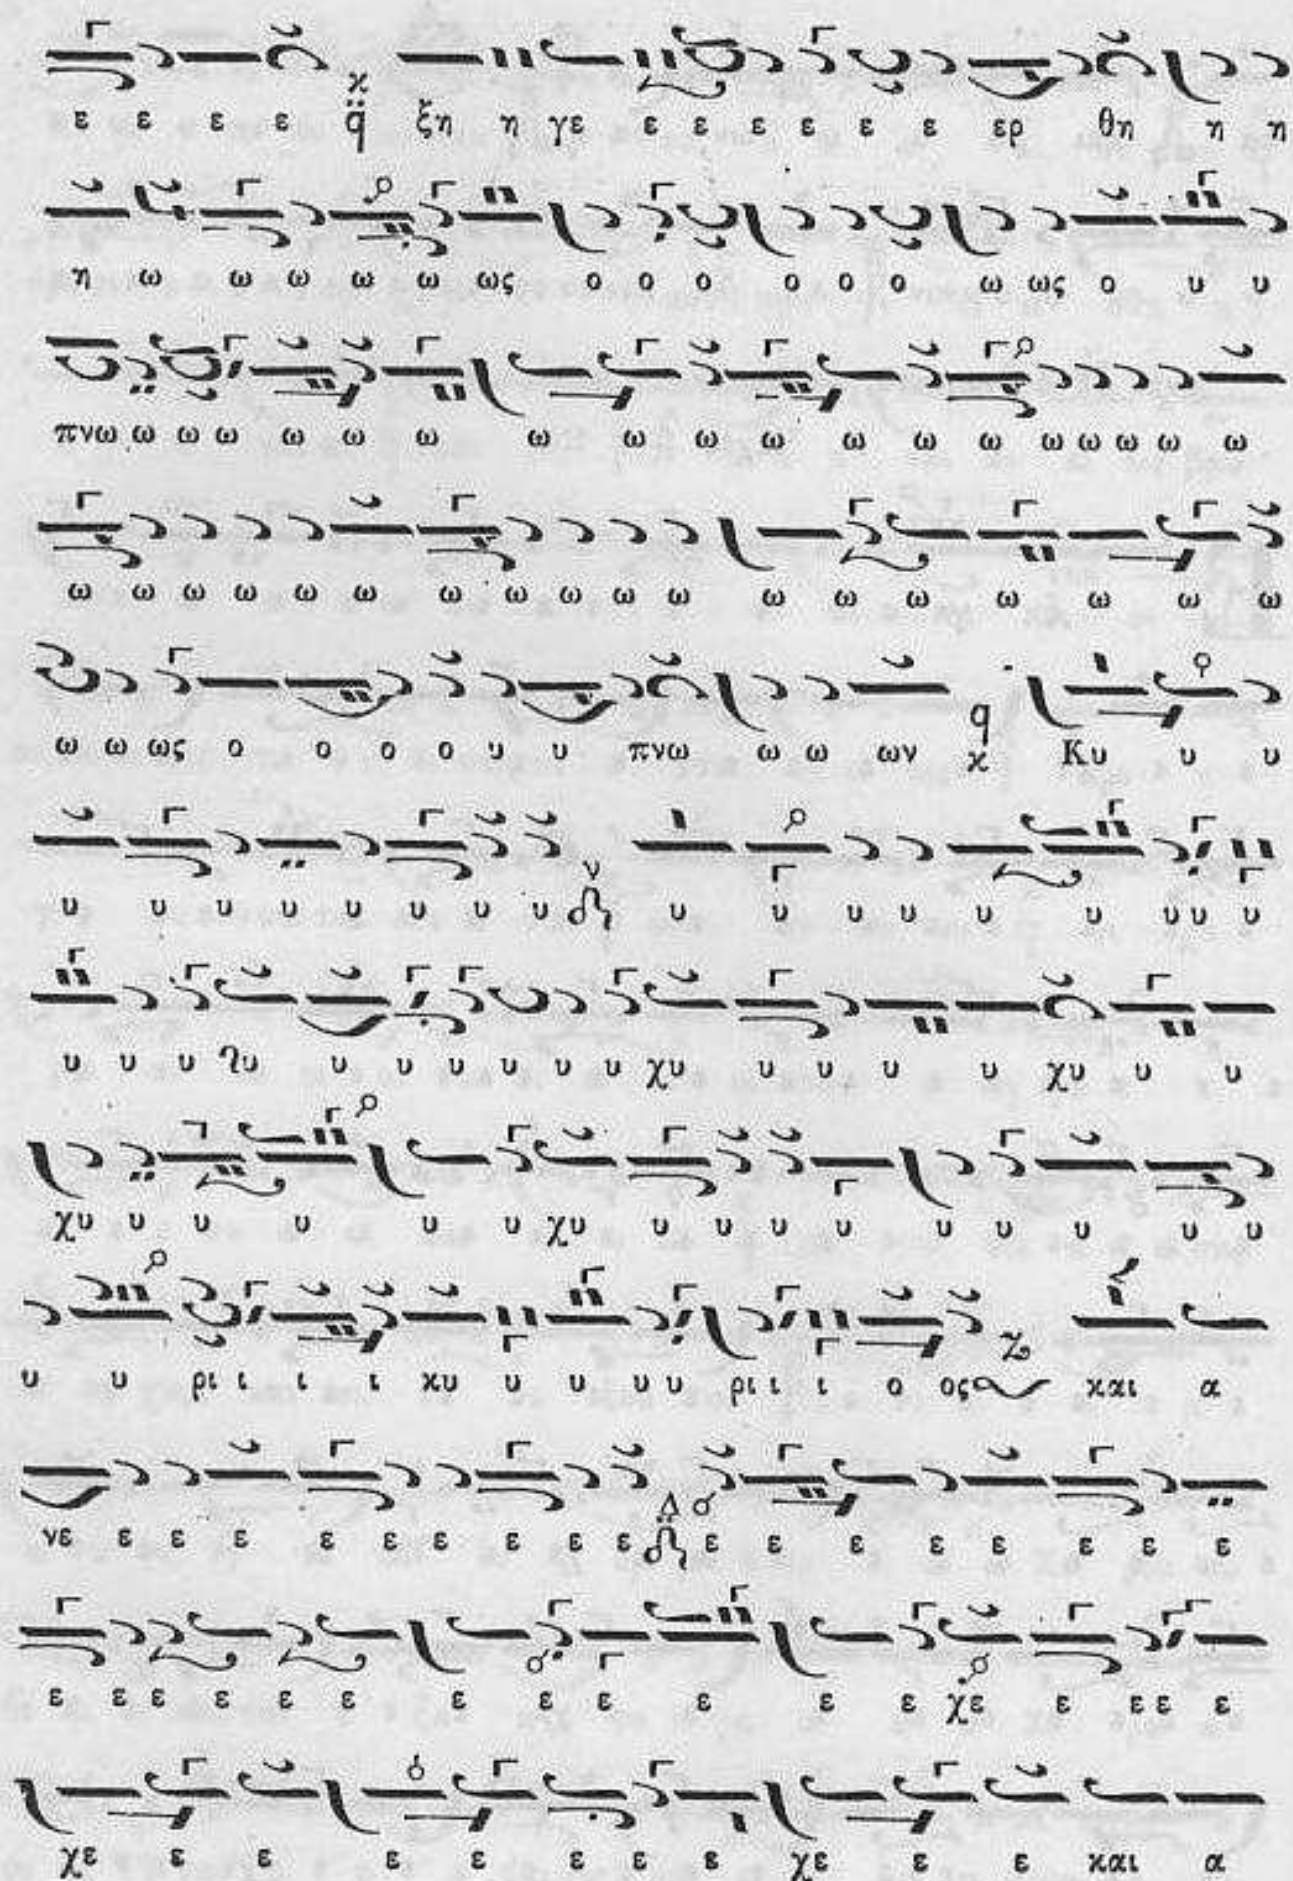 ε ε ε ε q̈ ξη η γε ε ε ε ε ε ε ερ θη η η
η ω ω ω ω ω ως ο ο ο ο ο ο ω ως ο υ υ
πνω ω ω ω ω ω ω ω ω ω ω ω ω ω ω ω ω ω ω
ω ω ω ω ω ω ω ω ω ω ω ω ω ω ω ω ω ω
ω ω ως ο ο ο ο υ υ πνω ω ω ων q Κυ υ υ
υ υ υ υ υ υ υ υ υ υ υ υ υ υ υ υ υ
υ υ υ υ υ υ υ υ υ υ χυ υ υ υ υ χυ υ υ
χυ υ υ υ υ υ χυ υ υ υ υ υ υ υ υ υ
υ υ ρι ι ι ι κυ υ υ υ υ ρι ι ι ο ος και α
νε ε ε ε ε ε ε ε ε ε Δ ε ε ε ε ε ε ε ε
ε ε ε ε ε ε ε ε ε ε ε ε χε ε ε ε ε
χε ε ε ε ε ε ε ε χε ε ε και α